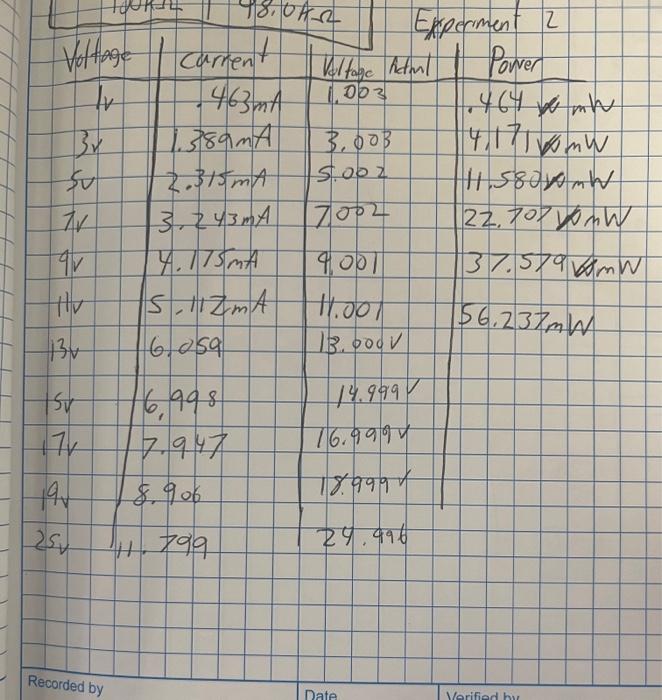 100kΩ 98.0kΩ
Experiment 2
Voltage Current Voltage Actual Power
1v .463mA 1.003 .464 mW
3v 1.389mA 3.003 4.171 mW
5v 2.315mA 5.002 11.580 mW
7v 3.243mA 7.002 22.707 mW
9v 4.175mA 9.001 37.579 mW
11v 5.112mA 11.001 56.237mW
13v 6.059 13.000v
15v 6.998 14.999v
17v 7.947 16.999v
19v 8.906 18.999v
25v 11.799 24.996
Recorded by Date Verified by